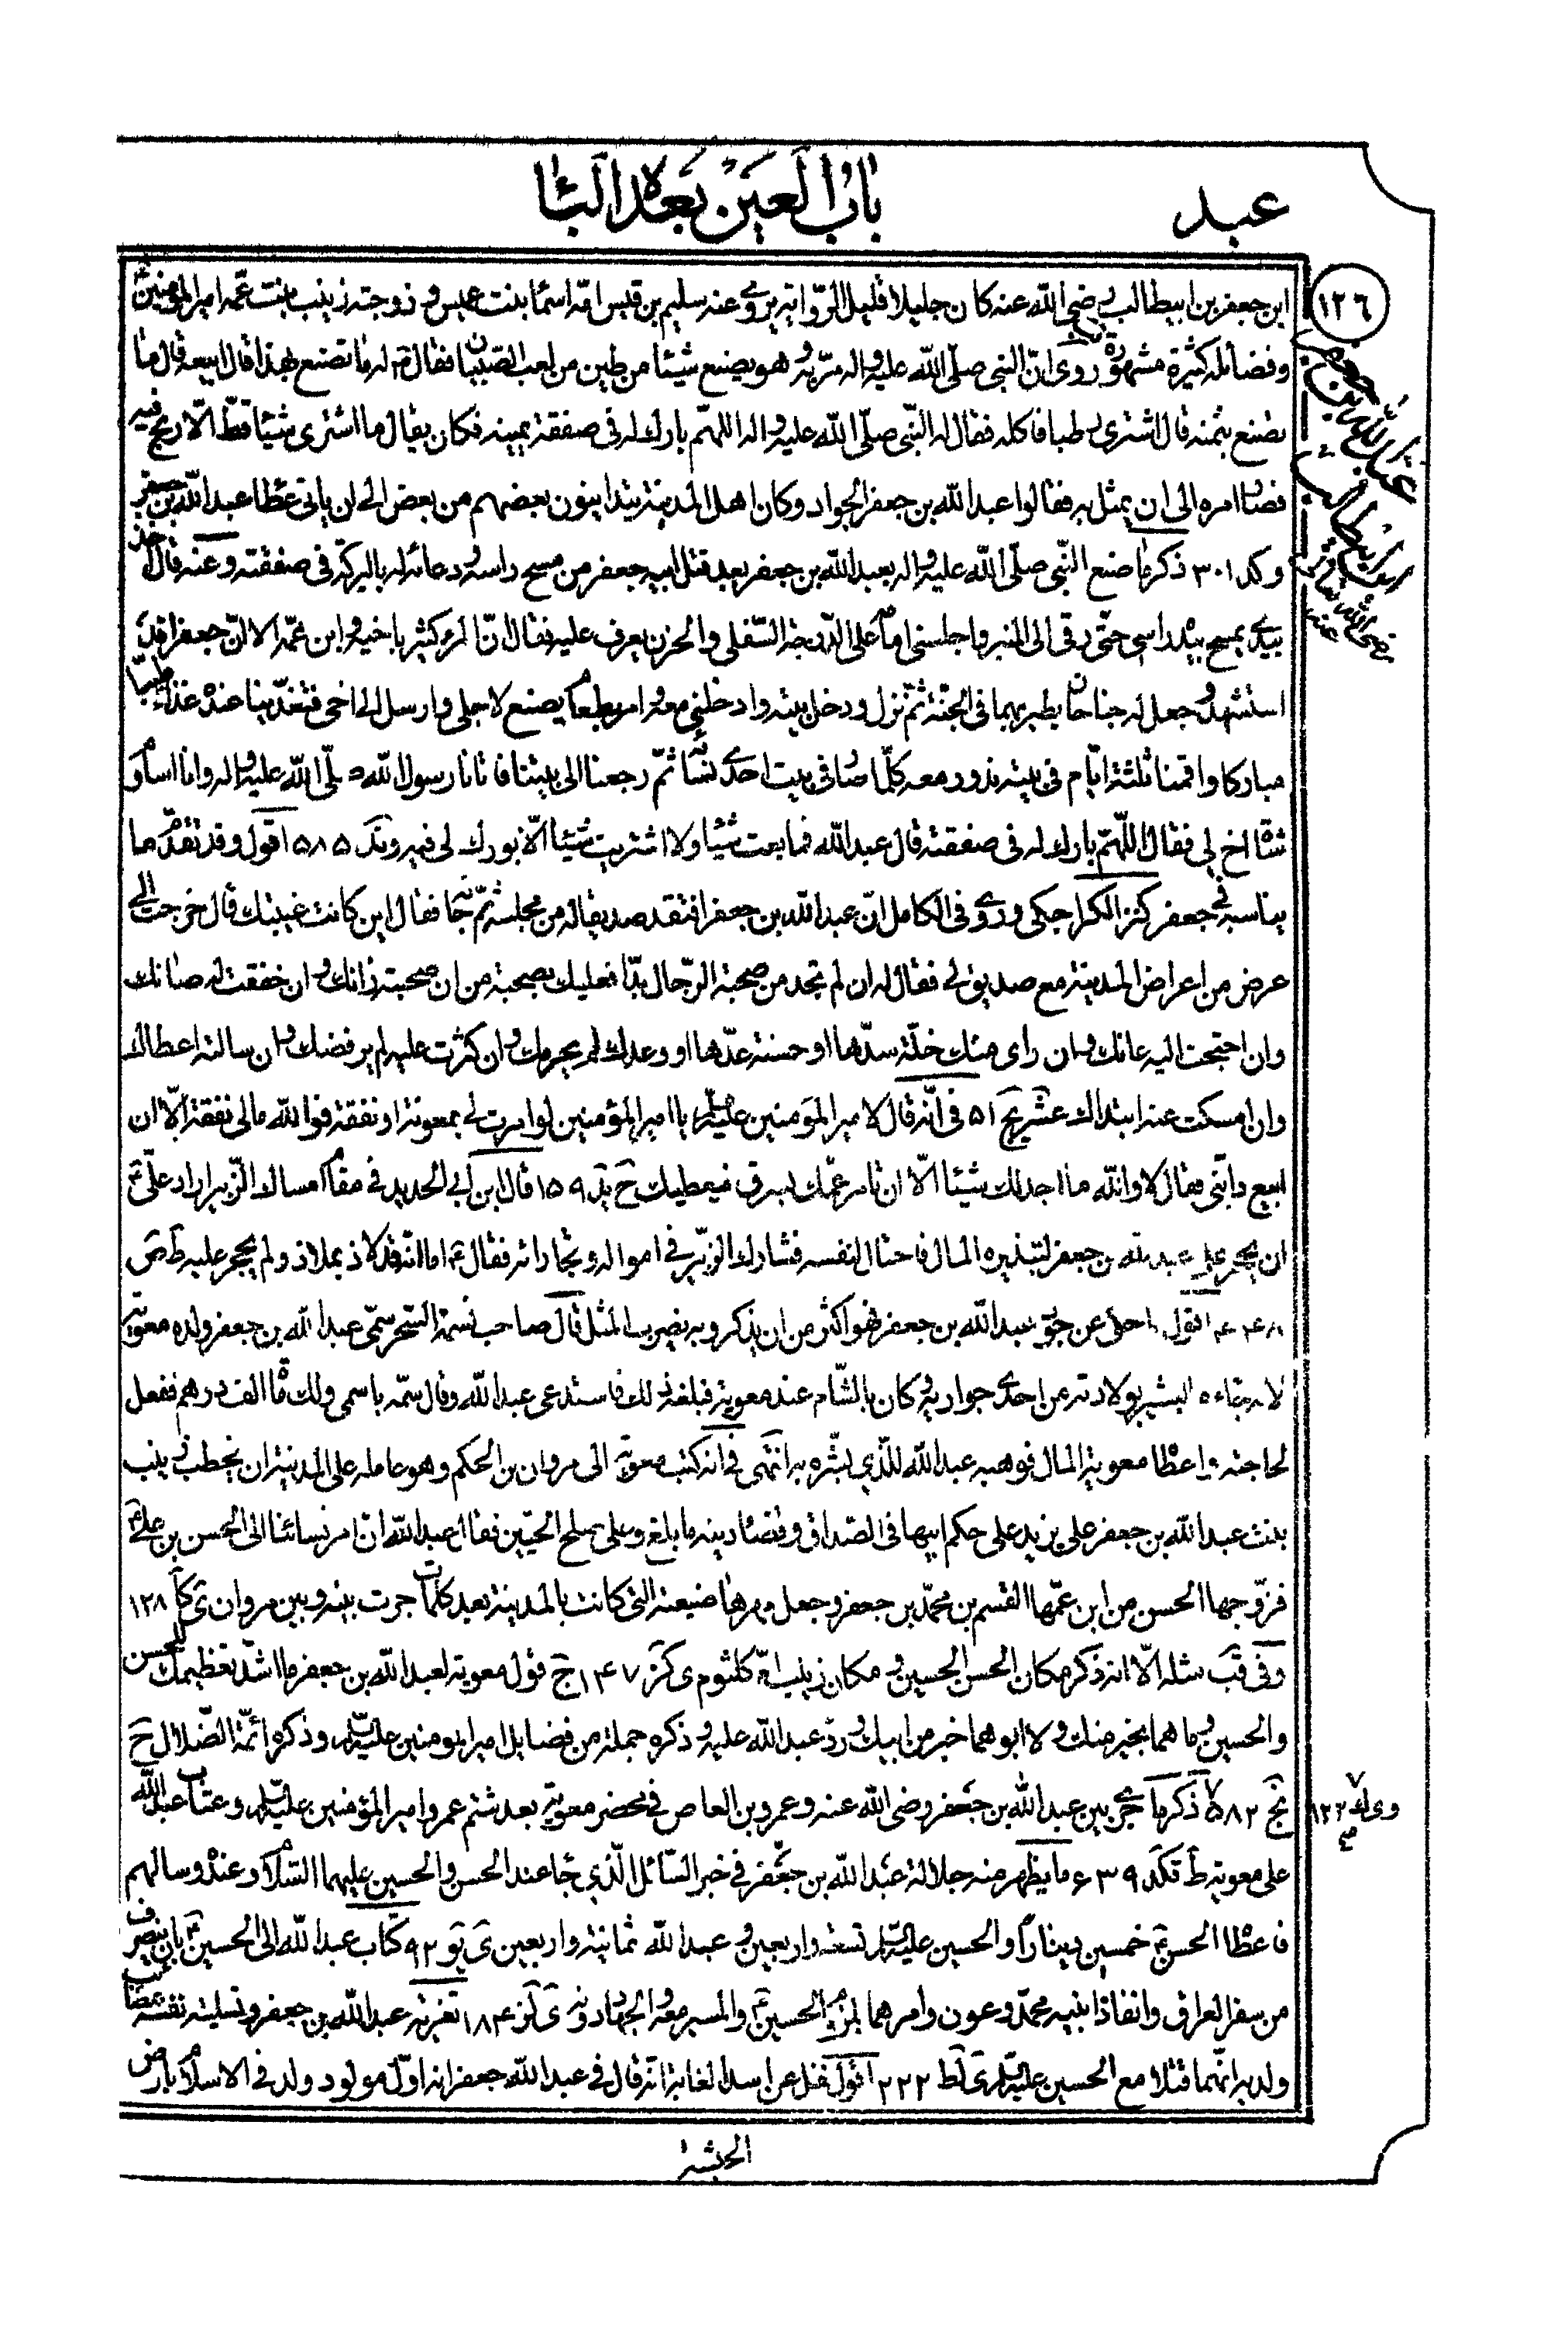 عبد
باب العين بعده الباء
١٢٦
عبد الله بن جعفر
ابن ابيطالب
رضى الله عنه
ابن جعفر بن ابيطالب رضى الله عنه كان جليلا قليل الرّواية يروى عنه سليم بن قيس امّه اسماء بنت عميس و زوجته زينب بنت عمّه امير المؤمنين
و فضائله كثيرة مشهورة روى انّ النبى صلّى الله عليه و اله مرّ به و هو يصنع شيئا من طين من لعب الصّبيان فقال له ما تصنع بهذا قال ابيعه قال ما
تصنع بثمنه قال اشترى رطبا فاكله فقال له النّبى صلّى الله عليه و اله اللهمّ بارك له فى صفقة يمينه فكان يقال ما اشترى شيئا قطّ الّا ربح فيه
فصار امره الى ان يمثل به فقالوا عبد الله بن جعفر الجواد و كان اهل المدينة يتداينون بعضهم من بعض الى ان ياتى عطاء عبد الله بن جعفر
و كد ٣٠١ ذكر ما صنع النّبى صلّى الله عليه و اله بعبد الله بن جعفر بعد قتل ابيه جعفر من مسح راسه و دعائه له بالبركة فى صفقته و عنه قال اخذ
بيدى يمسح بيده راسى حتّى رقى الى المنبر و اجلسنى امامه على الدّرجة السّفلى و الحزن يعرف عليه فقال انّ المرء كثير باخيه و ابن عمّه الا انّ جعفرا قد
استشهد و جعل له جناحان يطير بهما فى الجنّة ثمّ نزل و دخل بيته و ادخلنى معه و امر بطعام يصنع لاجلى و ارسل الى اخى فتغدّينا عنده غذاء طيّبا
مباركا و اقمنا ثلثة ايّام فى بيته ندور معه كلّما صار فى بيت احدى نسائه ثمّ رجعنا الى بيتنا فاتانا رسول الله صلّى الله عليه و اله و انا اساوم
شاة اخ لى فقال اللّهمّ بارك له فى صفقته قال عبد الله فما بعت شيئا و لا اشتريت شيئا الّا بورك لى فيه و نك ٥٨٥ اقول و قد تقدّم ما
يناسبه فى جعفر كنز الكراجكى و روى فى الكامل انّ عبد الله بن جعفر افتقد صديقا له من مجلسه ثمّ جاءه فقال اين كانت غيبتك قال خرجت الى
عرض من اعراض المدينة مع صديق لى فقال له ان لم تجد من صحبة الرّجال بدّا فعليك بصحبة من ان صحبته زانك و ان خففت له صانك
و ان احتجت اليه عانك و ان راى منك خلّة سدّها او حسنة عدّها او وعدك لم يجرمك و ان كثرت عليه لم يرفضك و ان سالته اعطاك
و ان امسكت عنه ابتداك عشر يج ٥١ فى انّه قال لامير المؤمنين عليه السلام يا امير المؤمنين لو امرت لى بمعونة او نفقة فو الله مالى نفقة الّا ان
ابيع دابّتى فقال لا و الله ما اجد لك شيئا الّا ان تامر عمّك يسرق فيعطيك ح يد ١٥٩ قال ابن ابى الحديد فى مقام امساك الزّبير اراد علىّ
ان يحجر على عبد الله بن جعفر لتبذيره المال فاحتال لنفسه فشارك الزّبير فى امواله و تجاراته فقال اما انّه قد لاذ بملاذ و لم يحجر عليه ط ص
اقول عن جود عبد الله بن جعفر فهو اكثر من ان يذكر و به يضرب المثل قال صاحب نسمة السّحر سمّى عبد الله بن جعفر ولده معوية
لانه جاءه البشير بولادته من احدى جواريه و كان بالشّام عند معوية فبلغه ذلك فاستدعى عبد الله و قال سمّه باسمى و لك مائة الف درهم ففعل
لحاجته و اعطاه معوية المال فوهبه عبد الله للّذى بشّره به انتهى فى انه كتب معوية الى مروان بن الحكم و هو عامله على المدينة ان يخطب زينب
بنت عبد الله بن جعفر على يزيد على حكم ابيها فى الصّداق و قضاء دينه ما بلغ و على صلح الحيّين فقال عبد الله انّ امر نسائنا الى الحسن بن على
فزوّجها الحسن من ابن عمّها القسم بن محمّد بن جعفر و جعل مهرها ضيعته الّتى كانت بالمدينة بعد كلمات جرت بينه و بين مروان ى كا ١٢٨
و فى قب مثله الّا انه ذكر مكان الحسن الحسين و مكان زينب امّ كلثوم ى كز ١٤٧ ج قول معوية لعبد الله بن جعفر ما اشدّ تعظيمك للحسن
و الحسين و ما هما بخير منك و لا ابوهما خير من ابيك و ردّ عبد الله عليه و ذكره جملة من فضايل امير المؤمنين عليه السلام و ذكره ائمّة الضّلال ح
نج ٥٨٢ ذكر ما جرى بين عبد الله بن جعفر رضى الله عنه و عمرو بن العاص فى محضر معوية بعد شتم عمرو امير المؤمنين عليه السلام و عتاب عبد الله
على معوية ط قكد ٦٣٩ ما يظهر منه جلالة عبد الله بن جعفر فى خبر السّائل الّذى جاء عند الحسن و الحسين عليهما السّلام و عنده و سالهم
فاعطاه الحسن خمسين دينارا و الحسين عليه السلام تسعة و اربعين و عبد الله ثمانية و اربعين ى يو ٩٢ كتاب عبد الله الى الحسين بان ينصرف
من سفر العراق و انفاذ ابنيه محمّد و عون و امرهما بلزوم الحسين و المسير معه و الجهاد دونه ى لز ١٨٤ تعزية عبد الله بن جعفر و تسلية نفسه بمصاب
ولديه انّهما قتلا مع الحسين عليه السلام ى لط ٢٢٢ اقول نقل عن اسد الغابة انّه قال فى عبد الله جعفر انه اوّل مولود ولد فى الاسلام بارض
الحبشة